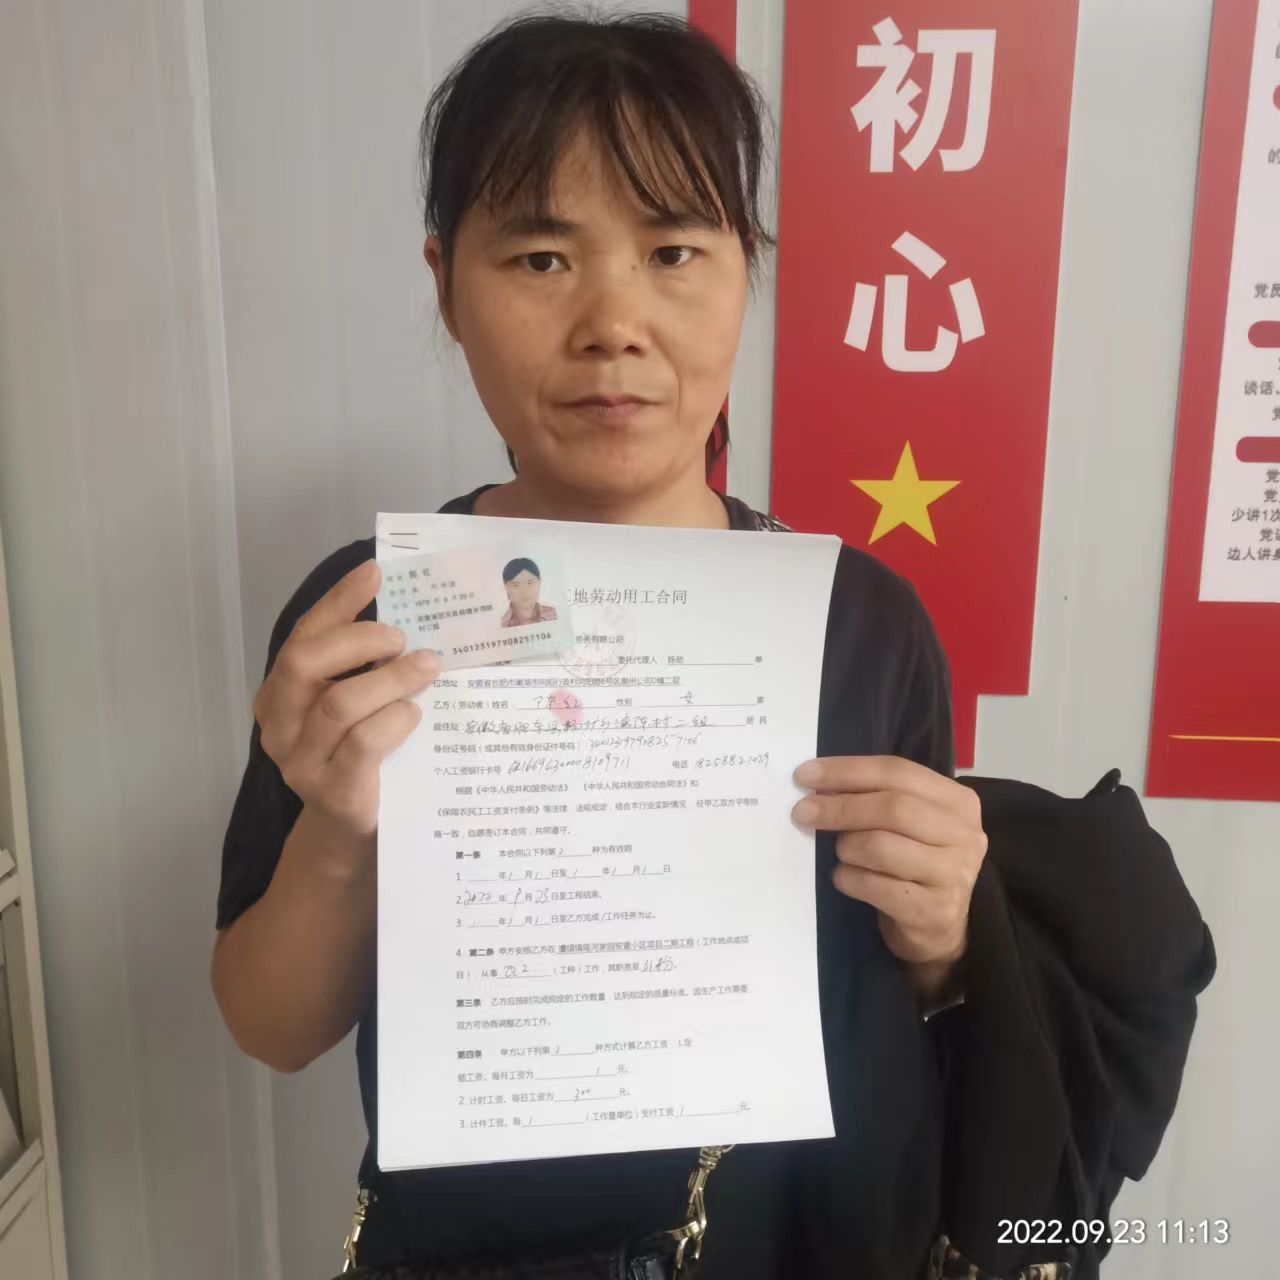 初
心
的
党员
谈话、
党
党
党
少讲1次
党课
边人讲身
工地劳动用工合同
劳务有限公司
委托代理人 陈勋 单
位地址：安徽省合肥市巢湖市向阳行政村向阳路6号区巢州公司D幢二层
乙方（劳动者）姓名 陈红 性别 女 家
庭住址 二组 是 民
身份证号码（或其他有效身份证件号码）：340123197908257106
个人工资银行卡号 电话 18258821029
根据《中华人民共和国劳动法》 《中华人民共和国劳动合同法》和
《保障农民工工资支付条例》等法律、法规规定，结合本行业实际情况，经甲乙双方平等协
商一致，自愿签订本合同，共同遵守。
第一条 本合同以下列第 2 种为有效期
1. 年/月/日至/年/月/日
2. 2022年9月23日至工程结束。
3. 年/月/日至乙方完成/工作任务为止。
4. 第二条 甲方安排乙方在 家园安置小区项目二期工程（工作地点或项
目），从事 瓦工（工种）工作，其职责是 粉。
第三条 乙方应按时完成规定的工作数量，达到规定的质量标准。因生产工作需要，
双方可协商调整乙方工作。
第四条 甲方以下列第 2 种方式计算乙方工资 1.定
额工资，每月工资为 / 元。
2. 计时工资，每日工资为 300 元。
3. 计件工资，每 / （工作量单位）支付工资 / 元
红
1979年8月25日
村二组
340123197908257106
2022.09.23 11:13